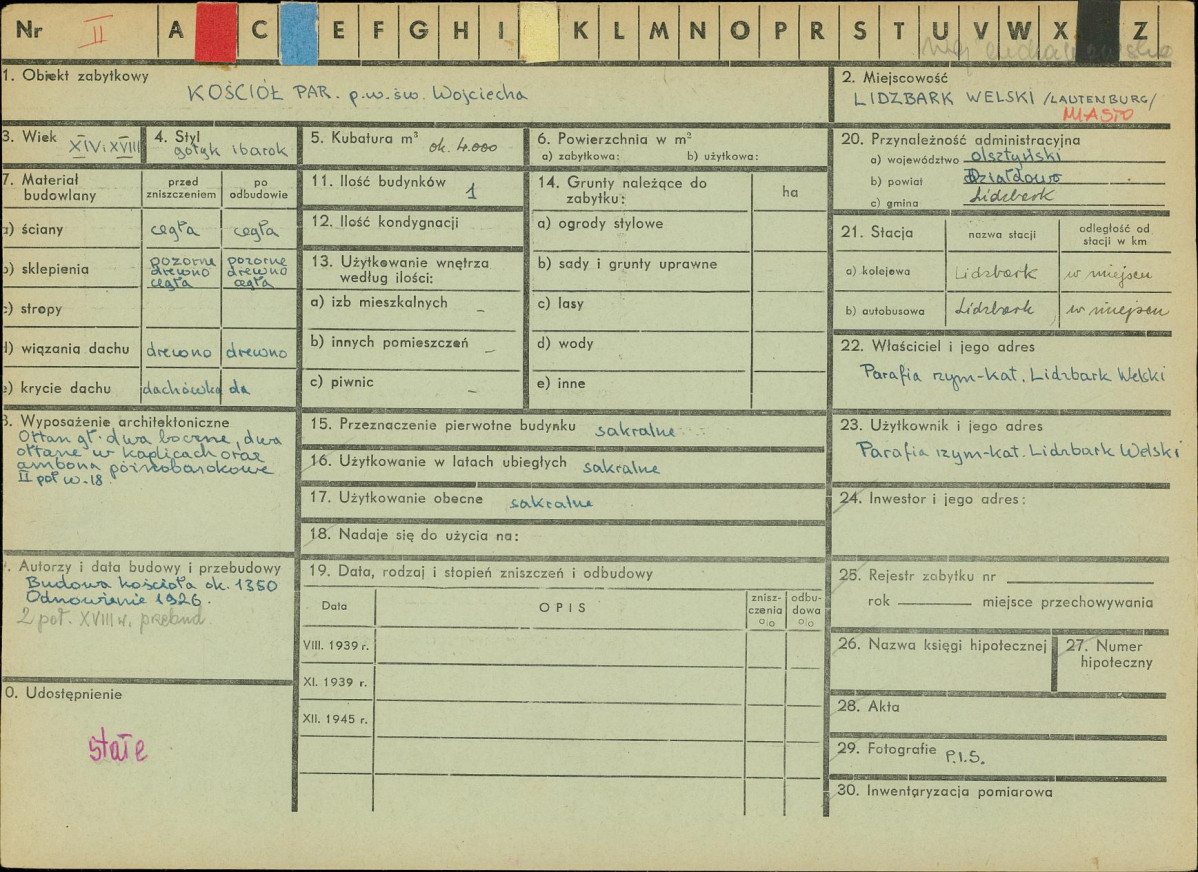 Nr II A C E F G H I K L M N O P R S T U V W X Z
1. Obiekt zabytkowy
KOŚCIÓŁ PAR. p.w. św. Wojciecha
2. Miejscowość
LIDZBARK WELSKI /LAUTENBURG/
MIASTO
3. Wiek XIV i XVIII
4. Styl
gotyk i barok
5. Kubatura m³ ok. 4.000
6. Powierzchnia w m²
a) zabytkowa: b) użytkowa:
7. Materiał budowlany
przed zniszczeniem
po odbudowie
a) ściany cegła cegła
b) sklepienia
pozorne pozorne
drewno drewno
cegła cegła
c) stropy
d) wiązania dachu drewno drewno
e) krycie dachu dachówka da
8. Wyposażenie architektoniczne
Ołtarz gł. dwa boczne, dwa
ołtarze w kaplicach oraz
ambona późnobarokowe
II poł w. 18.
9. Autorzy i data budowy i przebudowy
Budowa kościoła ok. 1350
Odnowienie 1926.
2 poł. XVIII w. przebud.
10. Udostępnienie
stałe
11. Ilość budynków 1
12. Ilość kondygnacji
13. Użytkowanie wnętrza
według ilości:
a) izb mieszkalnych –
b) innych pomieszczeń –
c) piwnic –
14. Grunty należące do
zabytku:
ha
a) ogrody stylowe
b) sady i grunty uprawne
c) lasy
d) wody
e) inne
15. Przeznaczenie pierwotne budynku sakralne
16. Użytkowanie w latach ubiegłych sakralne
17. Użytkowanie obecne sakralne
18. Nadaje się do użycia na:
19. Data, rodzaj i stopień zniszczeń i odbudowy
Data
OPIS
znisz-
czenia
%
odbu-
dowa
%
VIII. 1939 r.
XI. 1939 r.
XII. 1945 r.
20. Przynależność administracyjna
a) województwo olsztyński
b) powiat Działdowo
c) gmina Lidzbark
21. Stacja
nazwa stacji
odległość od
stacji w km
a) kolejowa Lidzbark w miejscu
b) autobusowa Lidzbark w miejscu
22. Właściciel i jego adres
Parafia rzym-kat. Lidzbark Welski
23. Użytkownik i jego adres
Parafia rzym-kat. Lidzbark Welski
24. Inwestor i jego adres:
25. Rejestr zabytku nr
rok miejsce przechowywania
26. Nazwa księgi hipotecznej
27. Numer
hipoteczny
28. Akta
29. Fotografie P.I.S.
30. Inwentaryzacja pomiarowa